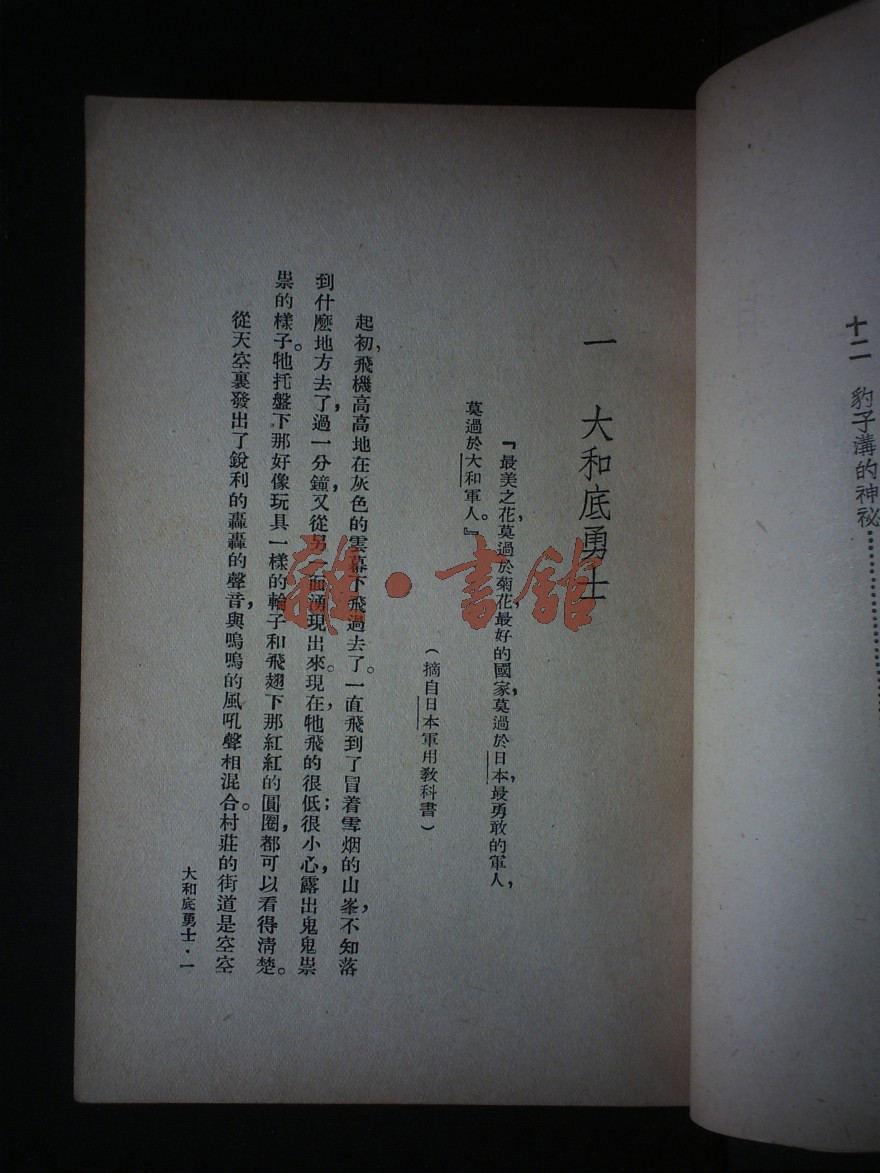 十二　豹子溝的神祕…………
一　大和底勇士
『最美之花，莫過於菊花，最好的國家，莫過於日本，最勇敢的軍人，
莫過於大和軍人。』
（摘自日本軍用教科書）
起初，飛機高高地在灰色的雲幕下飛過去了。一直飛到了冒着雪烟的山峯，不知落
到什麼地方去了，過一分鐘，又從另一面湧現出來。現在，牠飛的很低；很小心，露出鬼鬼祟
祟的樣子。牠托盤下那好像玩具一樣的輪子和飛翅下那紅紅的圓圈，都可以看得清楚。
從天空裏發出了銳利的轟轟的聲音，與嗚嗚的風吼聲相混合。村莊的街道是空空
大和底勇士·一
雜·書館